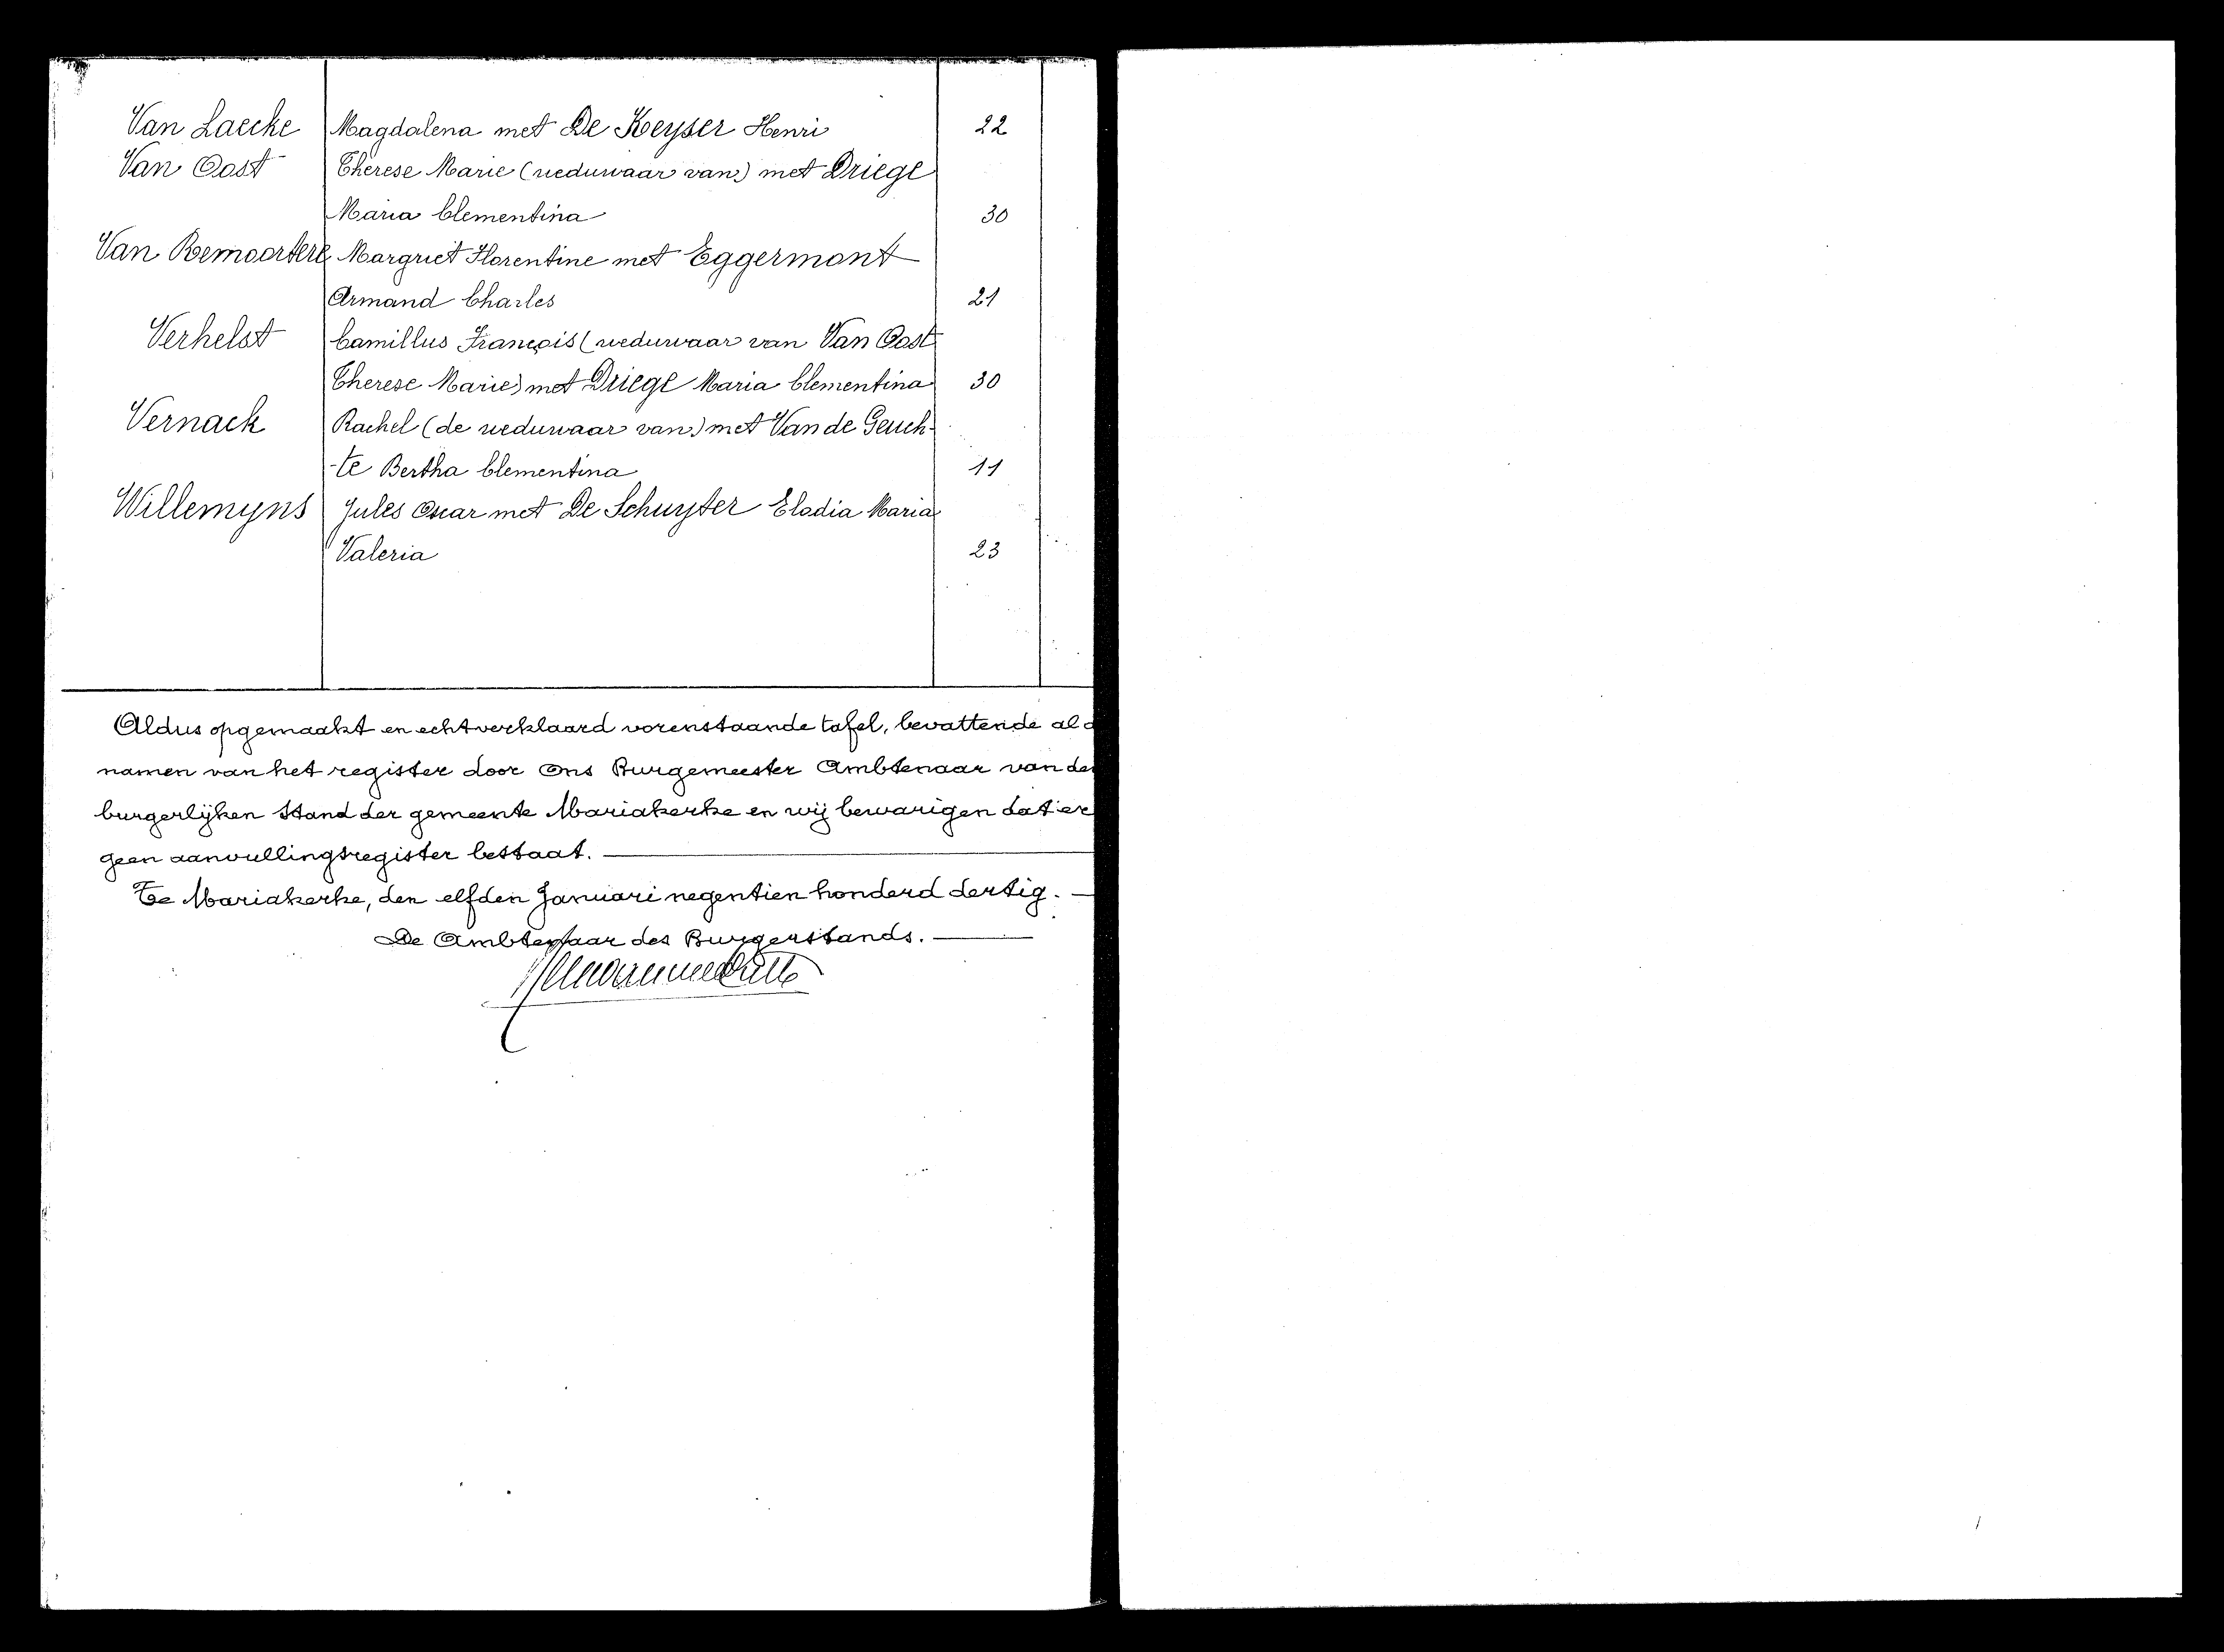 Van Laecke Magdalena met De Keyser Henri 22
Van Oost Therese Marie (weduwaar van) met Driege
Maria Clementina 30
Van Remoortere Margriet Florentine met Eggermont
Armand Charles 21
Verhelst Camillus François (weduwaar van Van Oost
Therese Marie) met Driege Maria Clementina 30
Vernack Rachel (de weduwaar van) met Van de Geuch-
-te Bertha Clementina 11
Willemyns Jules Oscar met De Schuyter Elodia Maria
Valeria 23
Aldus opgemaakt en echt verklaard vorenstaande tafel, bevattende al d
namen van het register door Ons Burgemeester Ambtenaar van den
burgerlijken Stand der gemeente Mariakerke en wij bewarigen dat er
geen aanvullingsregister bestaat.
Te Mariakerke, den elfden Januari negentien honderd dertig.
De Ambtenaar des Burgerstands.